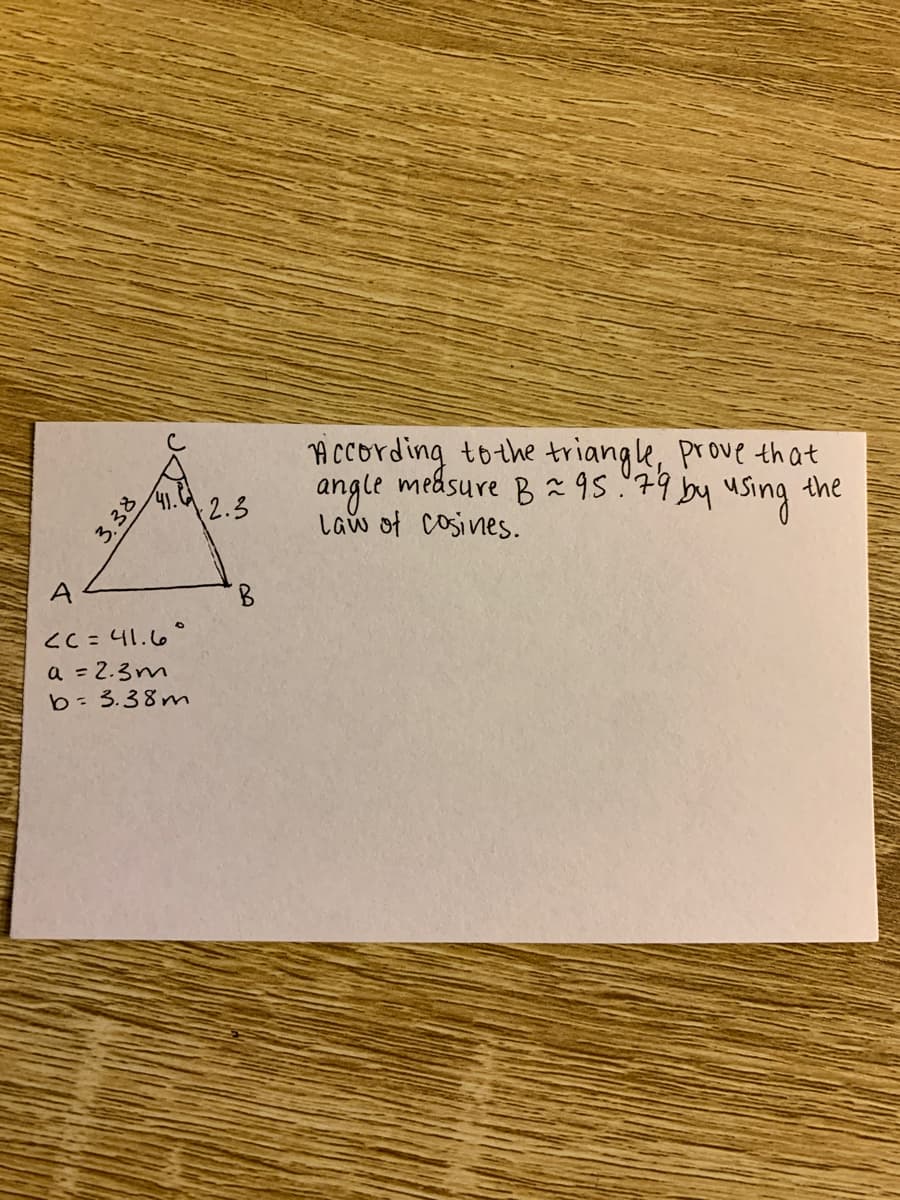 C
3.38
41.6
2.3
A
B
<C = 41.6°
a = 2.3m
b = 3.38m
According to the triangle, prove that
angle measure B ≈ 95.79 by using the
Law of cosines.